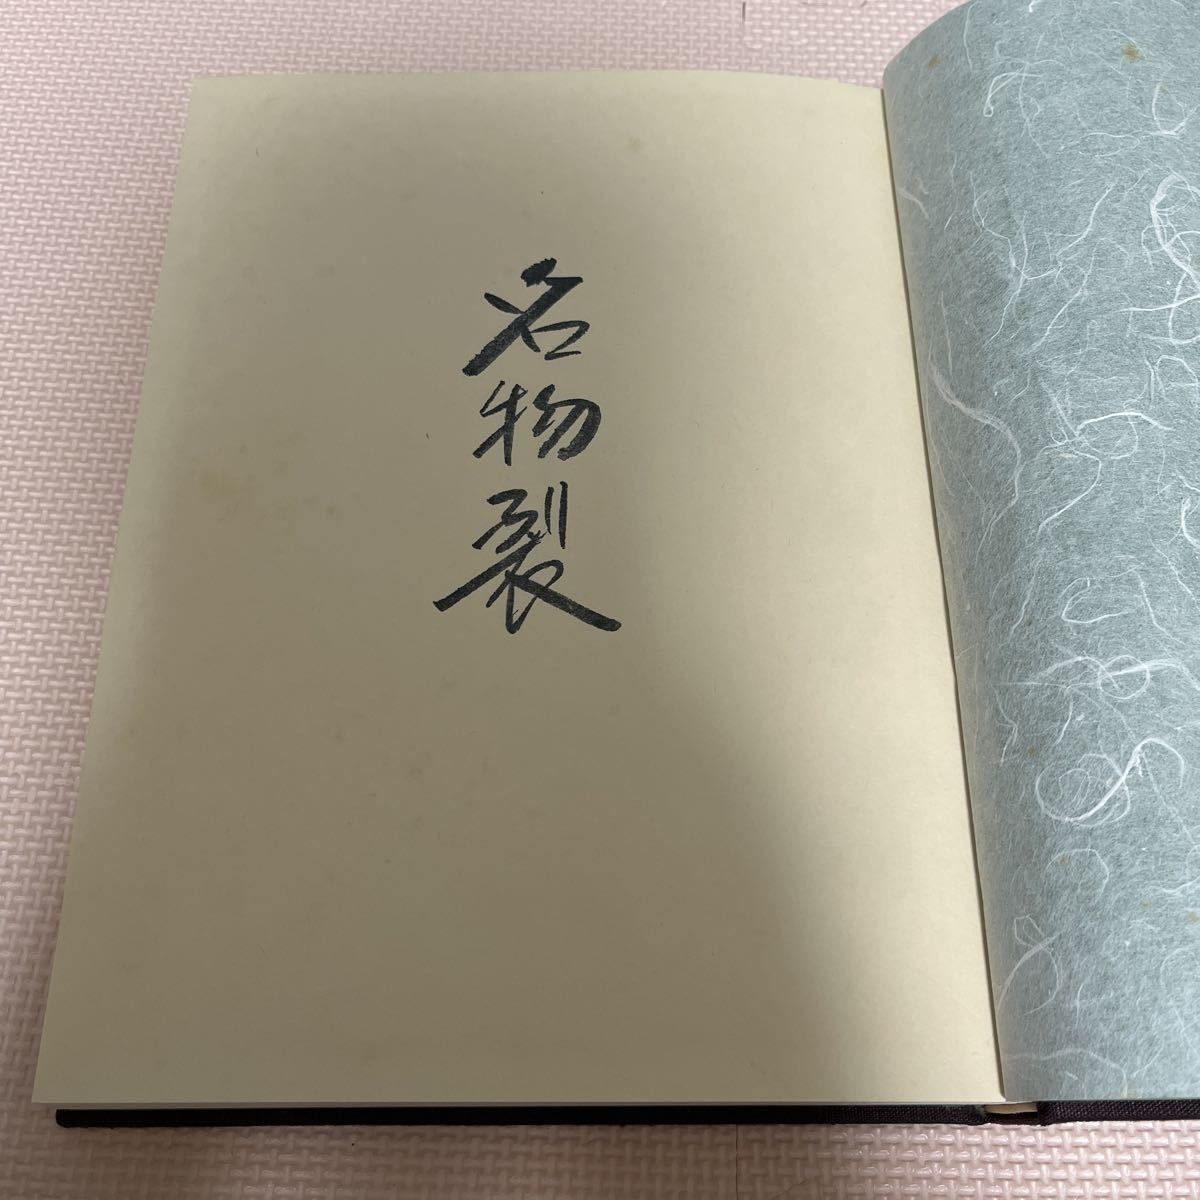 名物裂